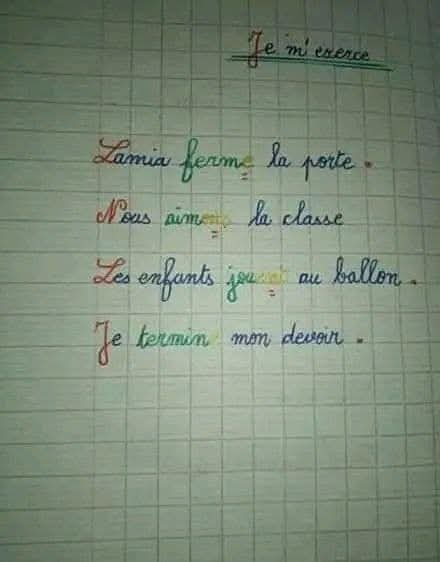 Je m'exerce
Lamia ferme la porte.
Nous aimons la classe
Les enfants jouent au ballon.
Je termine mon devoir.